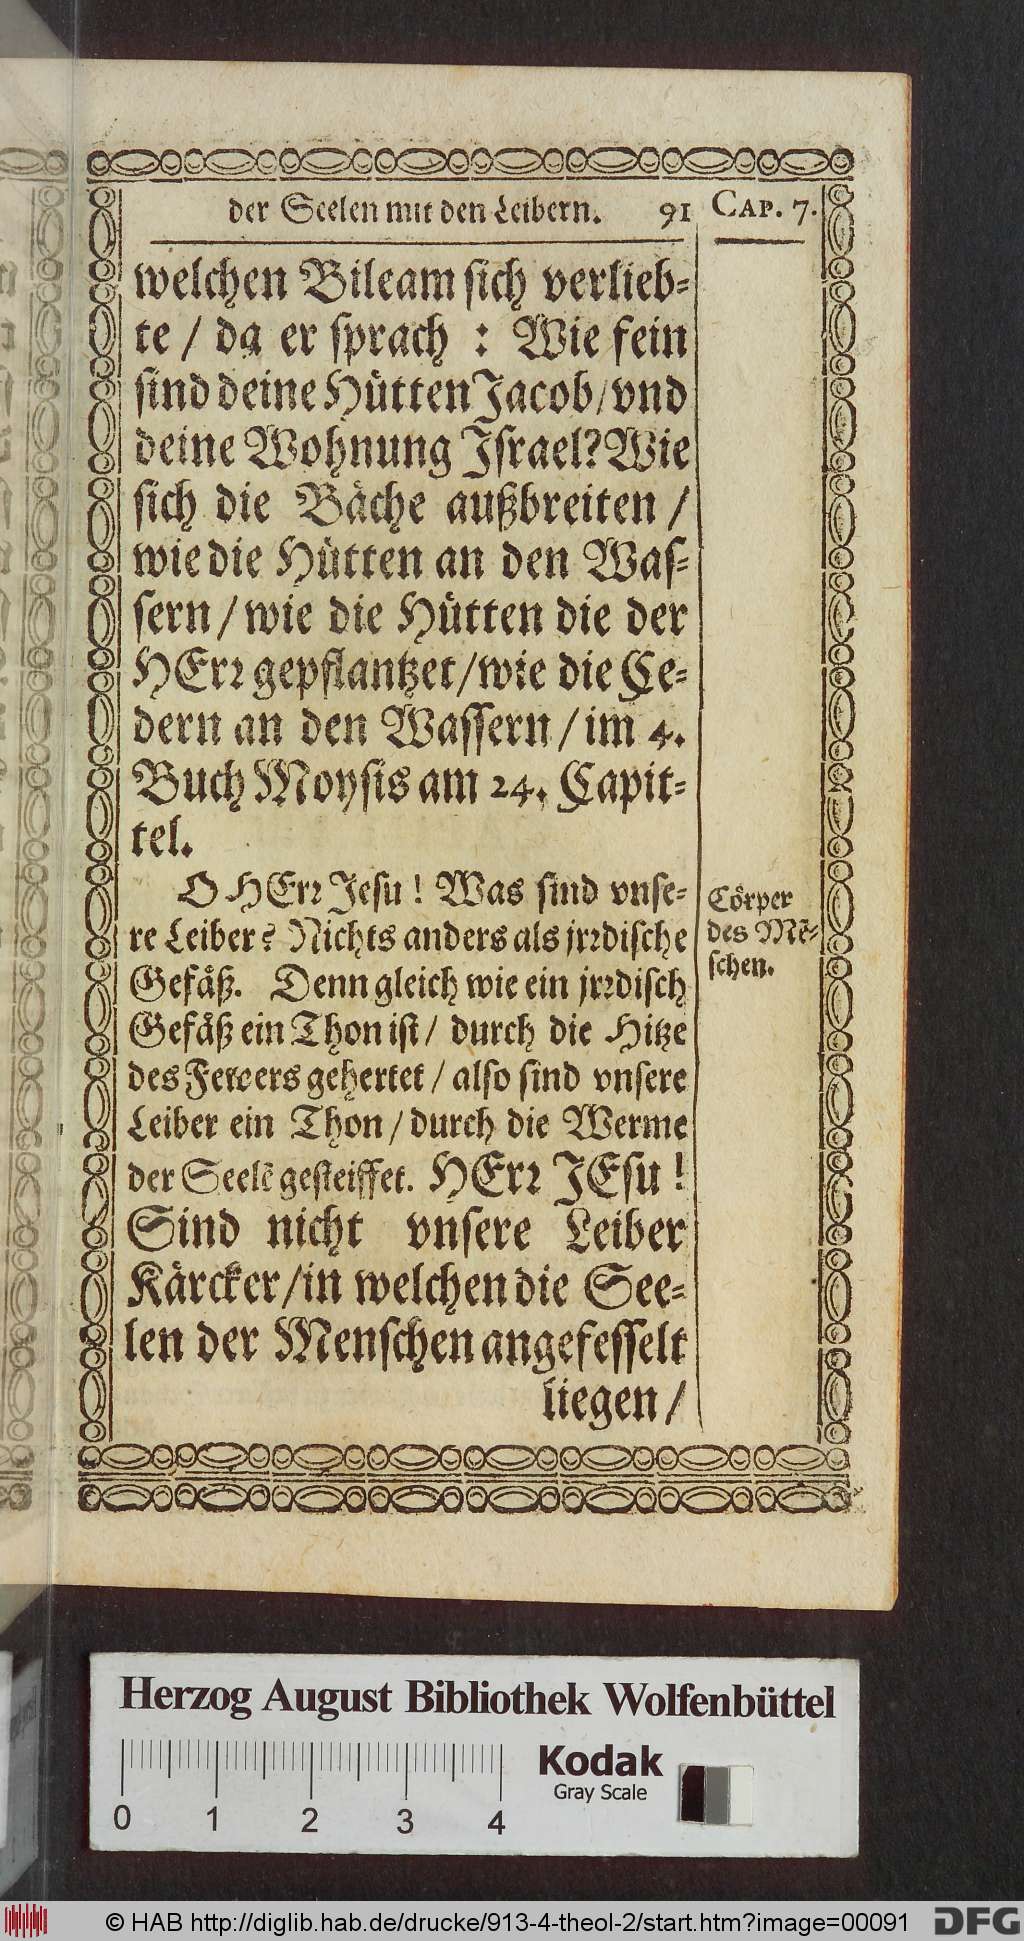 der Seelen mit den Leibern. 91 CAP. 7.
welchen Bileam sich verlieb-
te / da er sprach : Wie fein
sind deine Hütten Jacob / vnd
deine Wohnung Israel? Wie
sich die Bäche außbreiten /
wie die Hütten an den Was-
sern / wie die Hütten die der
HErr gepflantzet / wie die Ce-
dern an den Wassern / im 4.
Buch Moysis am 24. Capit-
tel.
O HErr Jesu ! Was sind vnse-
re Leiber? Nichts anders als jrrdische
Gefäß. Denn gleich wie ein jrrdisch
Gefäß ein Thon ist / durch die Hitze
des Fewers gehertet / also sind vnsere
Leiber ein Thon / durch die Werme
der Seelẽ gesteiffet. HErr JEsu !
Sind nicht vnsere Leiber
Kärcker / in welchen die See-
len der Menschen angefesselt
liegen /
Cörper
des Mẽ-
schen.
Herzog August Bibliothek Wolfenbüttel
Kodak
Gray Scale
0 1 2 3 4
© HAB http://diglib.hab.de/drucke/913-4-theol-2/start.htm?image=00091
DFG